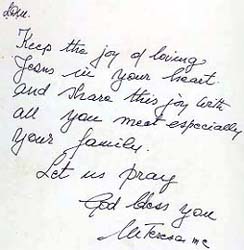 Keep the joy of loving
Jesus in your heart.
and share this joy with
all you meet especially
your family.
Let us pray
God bless you
M Teresa mc